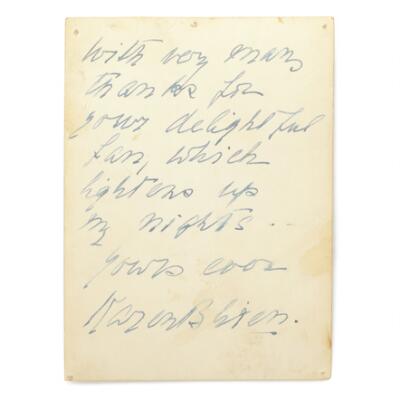 With very many
thanks for
your delightful
fan, which
lightens up
my nights..
yours ever
Karen Blixen.